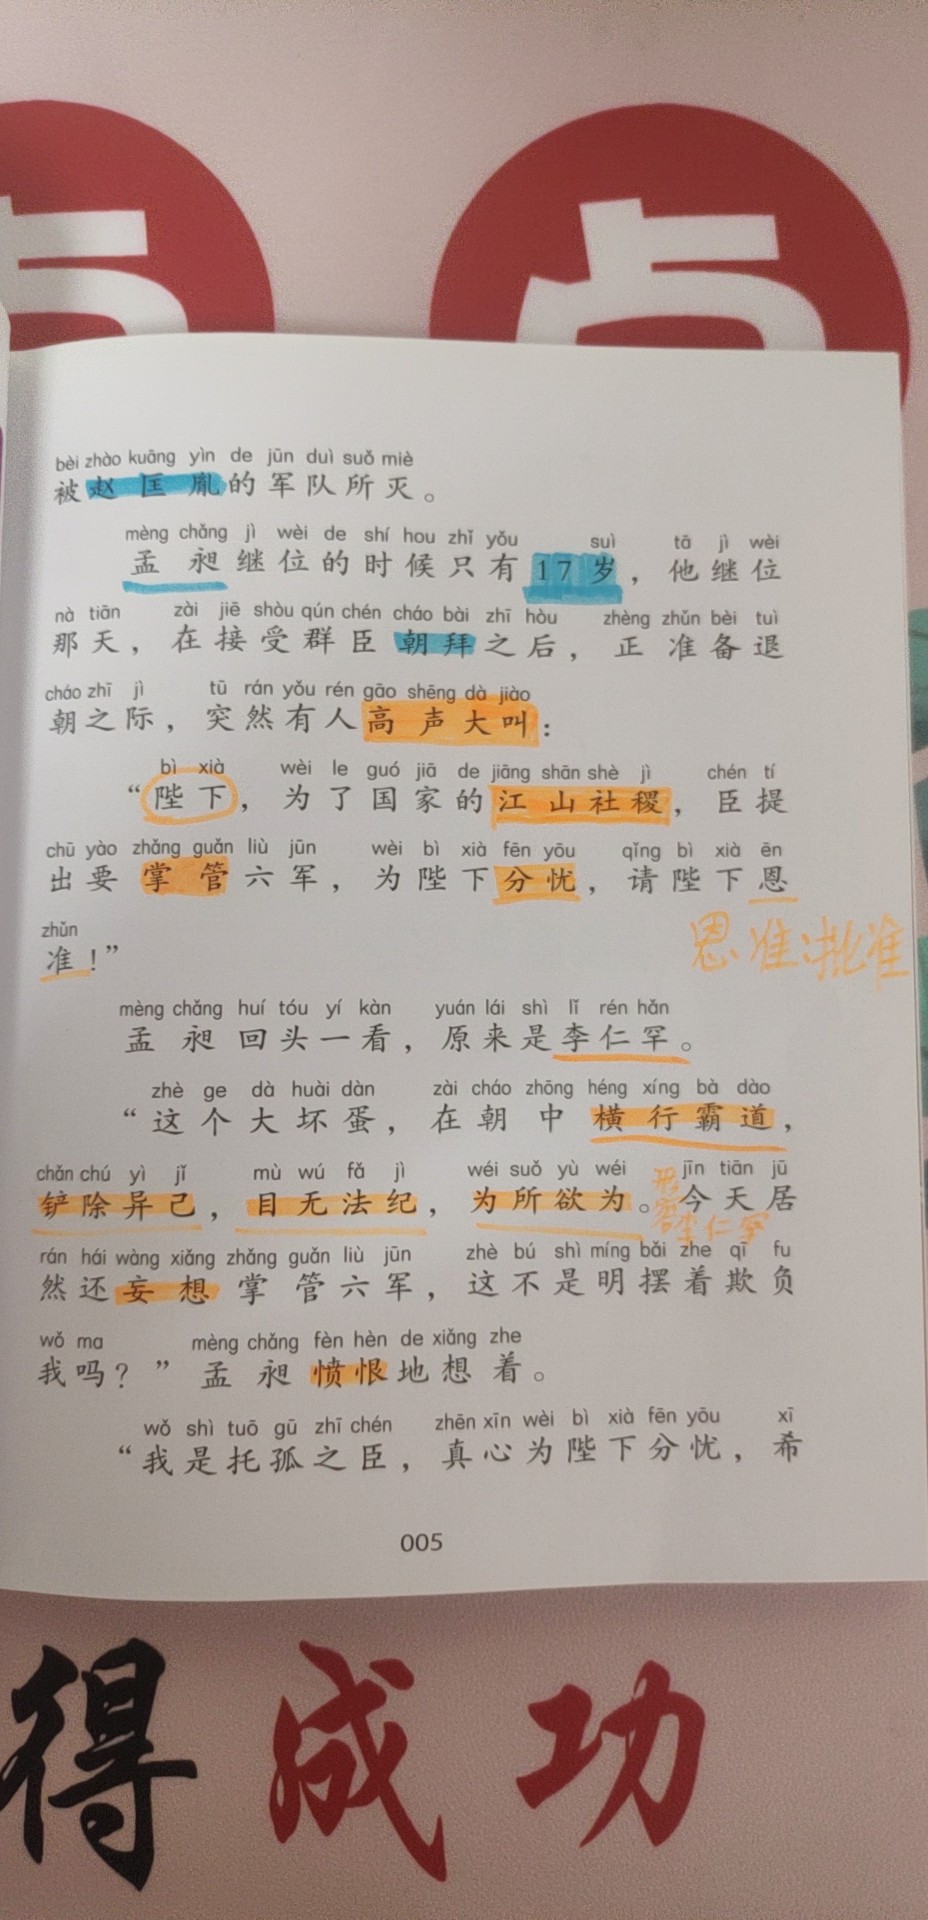 bèi zhào kuāng yìn de jūn duì suǒ miè
被赵匡胤的军队所灭。
mèng chǎng jì wèi de shí hou zhǐ yǒu suì tā jì wèi
孟昶继位的时候只有17岁，他继位
nà tiān zài jiē shòu qún chén cháo bài zhī hòu zhèng zhǔn bèi tuì
那天，在接受群臣朝拜之后，正准备退
cháo zhī jì tū rán yǒu rén gāo shēng dà jiào
朝之际，突然有人高声大叫：
bì xià wèi le guó jiā de jiāng shān shè jì chén tí
“陛下，为了国家的江山社稷，臣提
chū yào zhǎng guǎn liù jūn wèi bì xià fēn yōu qǐng bì xià ēn
出要掌管六军，为陛下分忧，请陛下恩
zhǔn
准！”
恩准：批准
mèng chǎng huí tóu yí kàn yuán lái shì lǐ rén hǎn
孟昶回头一看，原来是李仁罕。
zhè ge dà huài dàn zài cháo zhōng héng xíng bà dào
“这个大坏蛋，在朝中横行霸道，
chǎn chú yì jǐ mù wú fǎ jì wéi suǒ yù wéi jīn tiān jū
铲除异己，目无法纪，为所欲为。今天居
形容李仁罕
rán hái wàng xiǎng zhǎng guǎn liù jūn zhè bú shì míng bǎi zhe qī fu
然还妄想掌管六军，这不是明摆着欺负
wǒ ma mèng chǎng fèn hèn de xiǎng zhe
我吗？”孟昶愤恨地想着。
wǒ shì tuō gū zhī chén zhēn xīn wèi bì xià fēn yōu xī
“我是托孤之臣，真心为陛下分忧，希
005
得成功